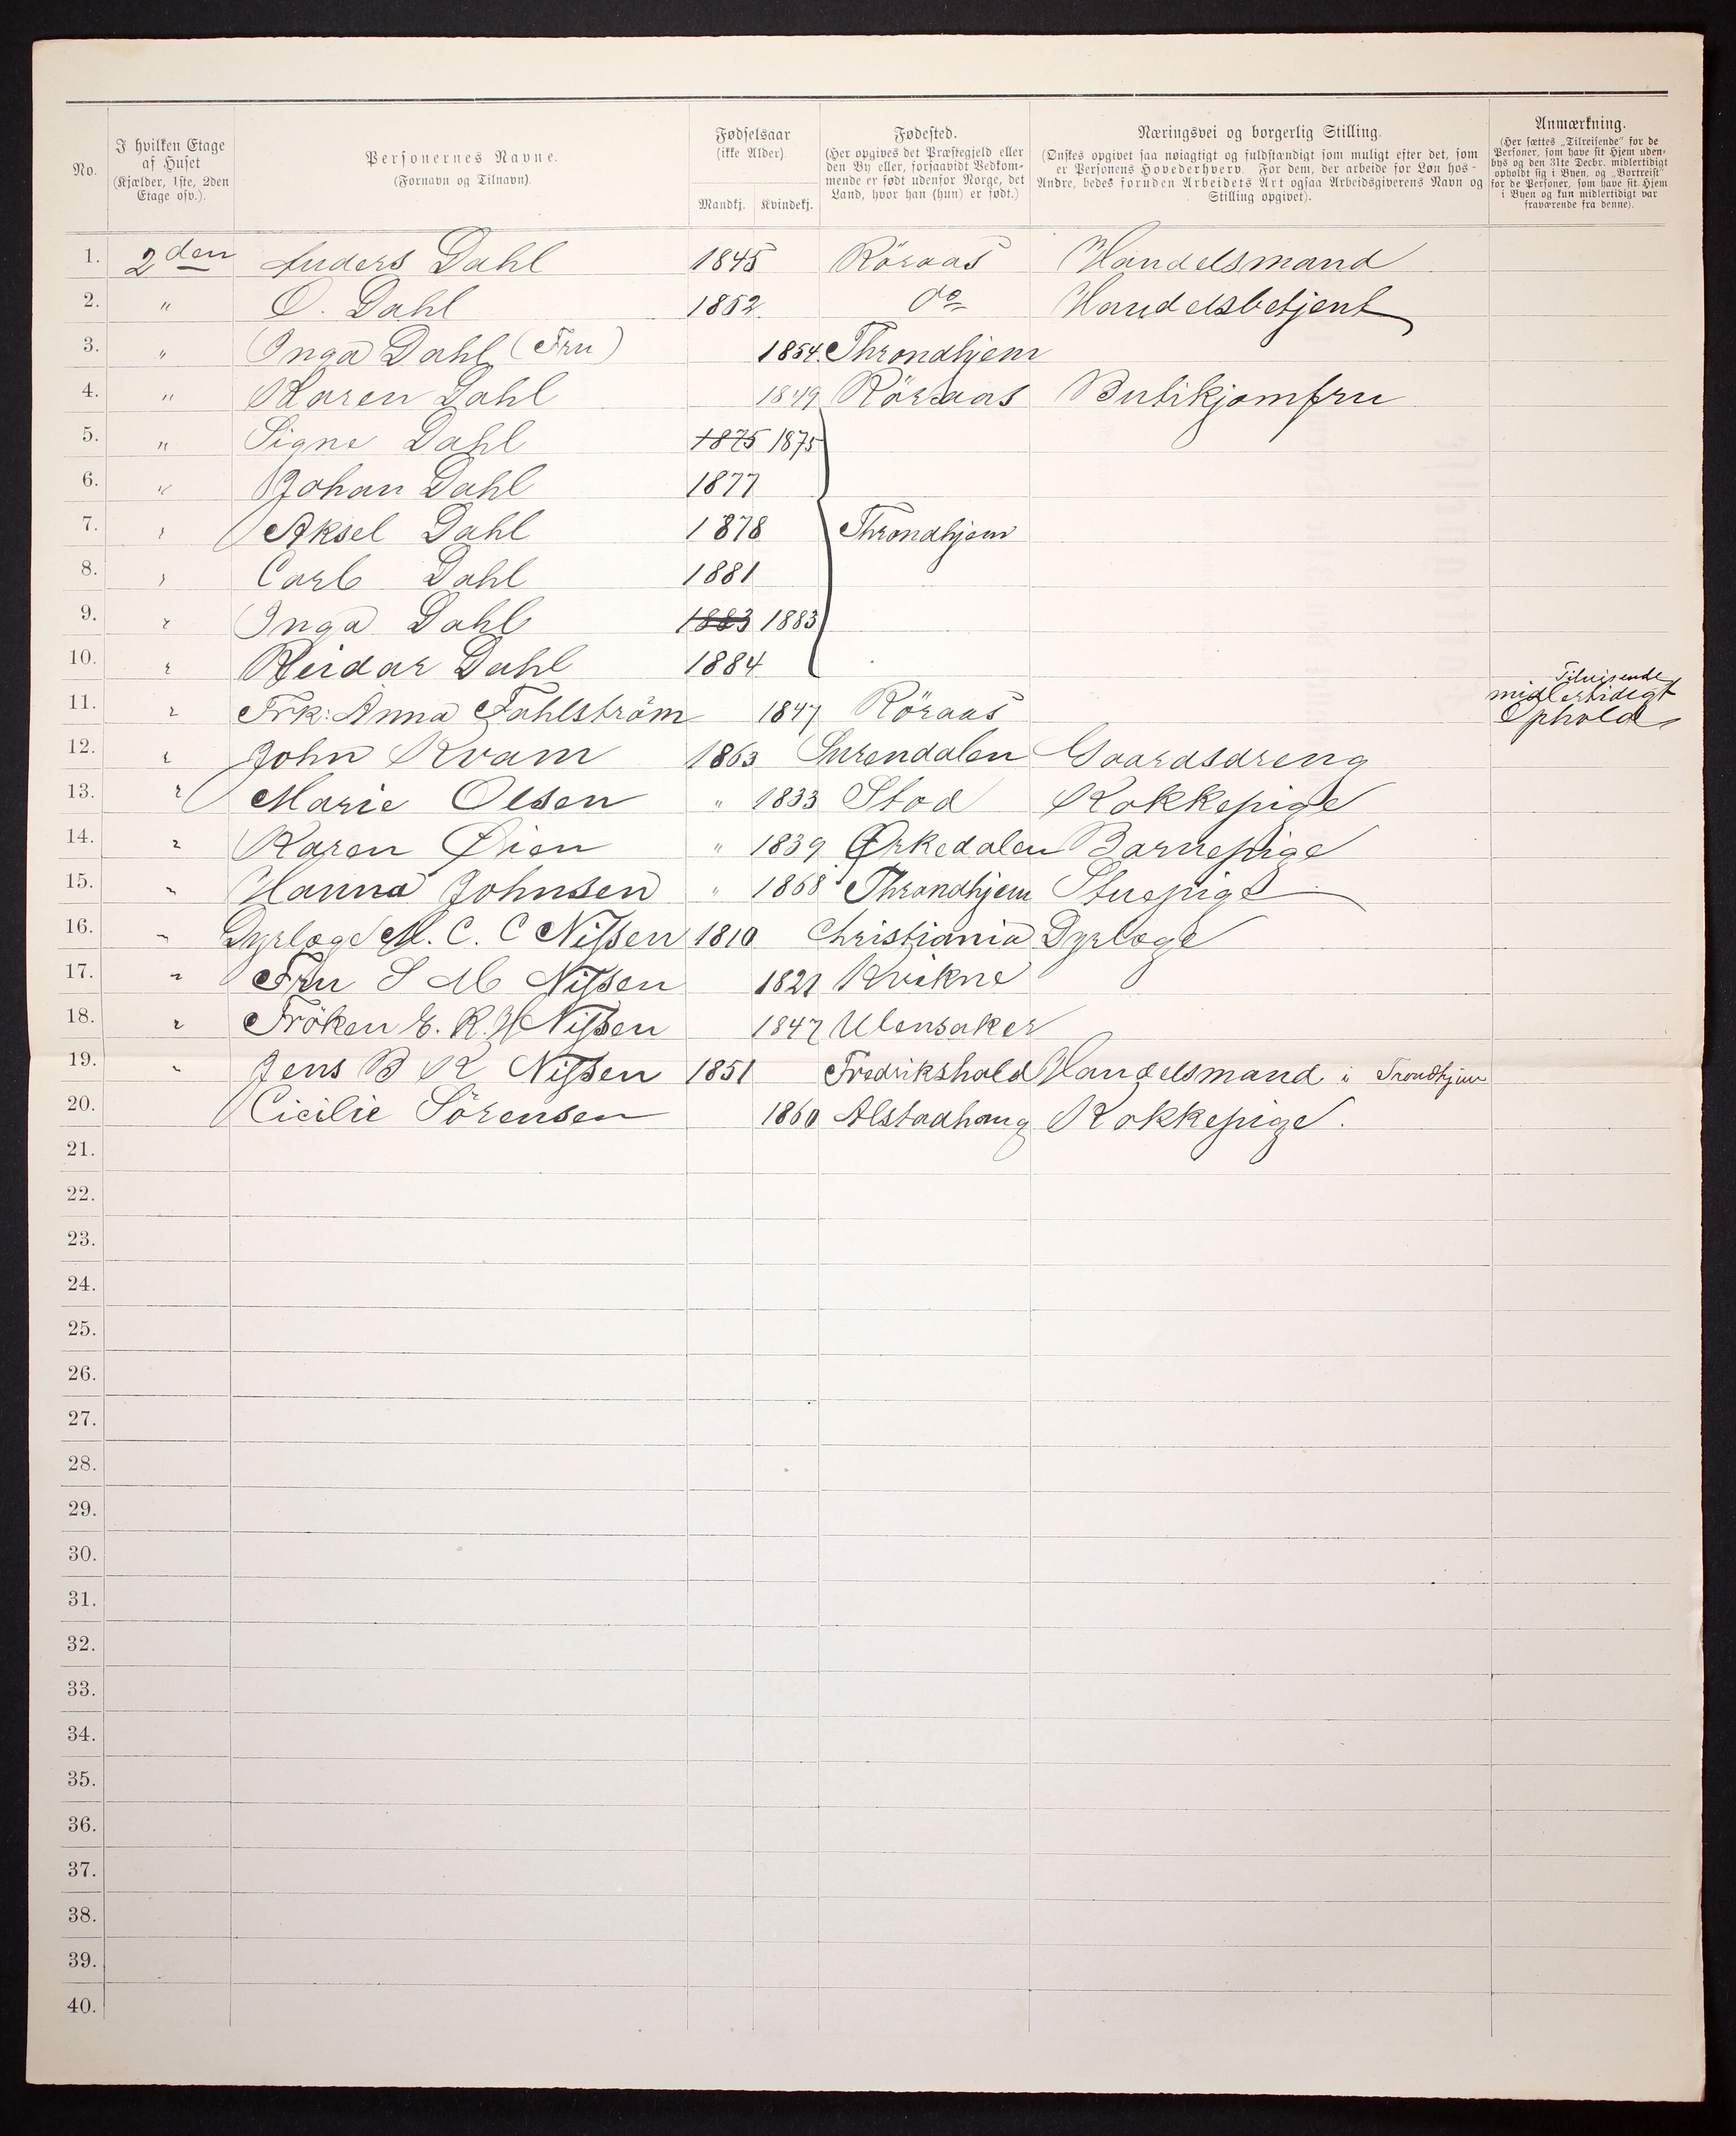 No.
I hvilken Etage af Huset (Kjælder, 1ste, 2den Etage osv.).
Personernes Navne. (Fornavn og Tilnavn).
Fødselsaar (ikke Alder).
Mandkj. Kvindekj.
Fødested. (Her opgives det Præstegjeld eller den By eller, forsaavidt Vedkommende er født udenfor Norge, det Land, hvor han (hun) er født.)
Næringsvei og borgerlig Stilling. (Ønskes opgivet saa nøiagtigt og fuldstændigt som muligt efter det, som er Personens Hovederhverv. For dem, der arbeide for Løn hos Andre, bedes foruden Arbeidets Art ogsaa Arbeidsgiverens Navn og Stilling opgivet).
Anmærkning. (Her sættes „Tilreisende" for de Personer, som have sit Hjem udenbys og den 31te Decbr. midlertidigt opholdt sig i Byen, og „Bortreist" for de Personer, som have sit Hjem i Byen og kun midlertidigt var fraværende fra denne).
1. 2den Anders Dahl 1845 Röraas Handelsmand
2. " O. Dahl 1852 do Handelsbetjent
3. " Inga Dahl (Fru) 1854. Throndhjem
4. " Karen Dahl 1849 Röraas Butikjomfru
5. " Signe Dahl 1875 1875
6. " Johan Dahl 1877
7. " Aksel Dahl 1878 Throndhjem
8. " Carl Dahl 1881
9. " Inga Dahl 1883 1883
10. " Reidar Dahl 1884
11. " Frk: Anna Fahlström 1847 Röraas Tilreisende midlertidigt Ophold
12. " John Kvam 1863 Surendalen Gaardsdreng
13. " Marie Olsen " 1833 Stod Kokkepige
14. " Karen Øien " 1839 Ørkedalen Barnepige
15. " Hanna Johnsen " 1868 Throndhjem Stuepige
16. " Dyrlæge M. C. C Nissen 1810 Christiania Dyrlæge
17. " Fru S M Nissen 1821 Kvikne
18. " Fröken E. K. H Nissen 1847 Ulensaker
19. " Jens B K Nissen 1851 Fredrikshald Handelsmand i Trondhjem
20. Cicilie Sörensen 1860 Alstadhaug Kokkepige.
21.
22.
23.
24.
25.
26.
27.
28.
29.
30.
31.
32.
33.
34.
35.
36.
37.
38.
39.
40.